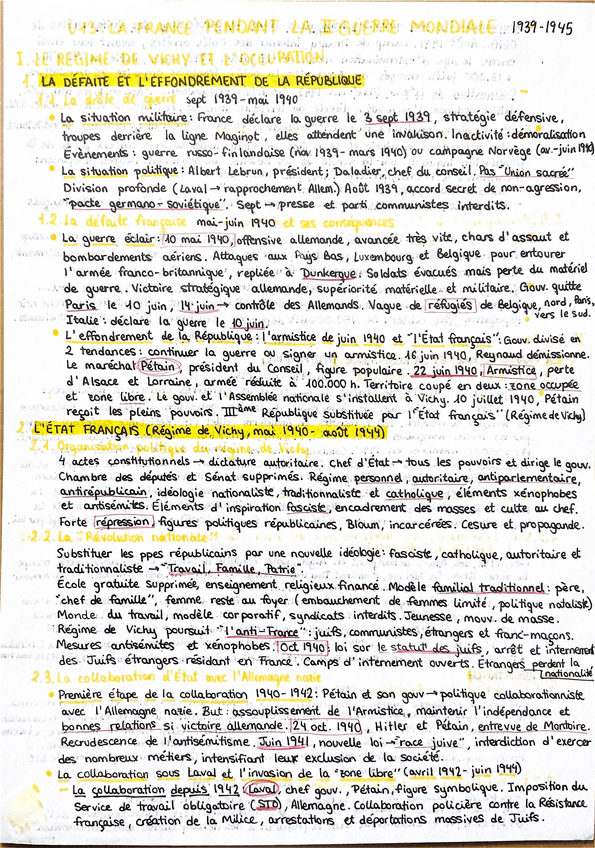 U13. LA FRANCE PENDANT LA IIe GUERRE MONDIALE 1939-1945
I. LE RÉGIME DE VICHY ET L'OCCUPATION
1. LA DÉFAITE ET L'EFFONDREMENT DE LA RÉPUBLIQUE
1.1. La drôle de guerre sept 1939-mai 1940
• La situation militaire: France déclare la guerre le 3 sept 1939, stratégie défensive,
troupes derrière la ligne Maginot, elles attendent une invasion. Inactivité: démoralisation
Evènements: guerre russo-finlandaise (nov 1939- mars 1940) ou campagne Norvège (av.-juin 1940)
• La situation politique: Albert Lebrun, président; Daladier, chef du conseil. Pas "Union sacrée"
Division profonde (Laval → rapprochement Allem.) Août 1939, accord secret de non-agression,
"pacte germano-soviétique". Sept → presse et parti communistes interdits.
1.2. La défaite française mai-juin 1940 et ses conséquences
• La guerre éclair: 10 mai 1940, offensive allemande, avancée très vite, chars d'assaut et
bombardements aériens. Attaques aux Pays Bas, Luxembourg et Belgique pour entourer
l'armée franco-britannique, repliée à Dunkerque. Soldats évacués mais perte du matériel
de guerre. Victoire stratégique allemande, supériorité matérielle et militaire. Gouv. quitte
Paris le 10 juin, 14 juin → contrôle des Allemands. Vague de réfugiés de Belgique, nord, Paris,
Italie: déclare la guerre le 10 juin. vers le sud.
• L'effondrement de la République: l'armistice de juin 1940 et "l'État français": Gouv. divisé en
2 tendances: continuer la guerre ou signer un armistice. 16 juin 1940, Reynaud démissionne.
Le maréchal Pétain, président du Conseil, figure populaire. 22 juin 1940, Armistice, perte
d'Alsace et Lorraine, armée réduite à 100.000 h. Territoire coupé en deux: zone occupée
et zone libre. Le gouv. et l'Assemblée nationale s'installent à Vichy. 10 juillet 1940, Pétain
reçoit les pleins pouvoirs. IIIème République substituée par l'"État français" (Régime de Vichy)
2. L'ÉTAT FRANÇAIS (Régime de Vichy, mai 1940- août 1944)
2.1. Organisation politique du régime de Vichy
4 actes constitutionnels → dictature autoritaire. Chef d'État → tous les pouvoirs et dirige le gouv.
Chambre des députés et Sénat supprimés. Régime personnel, autoritaire, antiparlementaire,
antirépublicain, idéologie nationaliste, traditionnaliste et catholique, éléments xénophobes
et antisémites. Éléments d'inspiration fasciste, encadrement des masses et culte au chef.
Forte répression, figures politiques républicaines, Bloum, incarcérées. Cesure et propagande.
2.2. La "Révolution nationale"
Substituer les ppes républicains par une nouvelle idéologie: fasciste, catholique, autoritaire et
traditionnaliste → "Travail, Famille, Patrie".
École gratuite supprimée, enseignement religieux financé. Modèle familial traditionnel: père,
"chef de famille", femme reste au foyer (embauchement de femmes limité, politique nataliste)
Monde du travail, modèle corporatif, syndicats interdits. Jeunesse, mouv. de masse.
Régime de Vichy poursuit "l'anti-France": juifs, communistes, étrangers et franc-maçons.
Mesures antisémites et xénophobes. Oct 1940: loi sur le statut des juifs, arrêt et internement
des Juifs étrangers résidant en France. Camps d'internement ouverts. Etrangers perdent la
nationalité
2.3. La collaboration d'État avec l'Allemagne nazie
• Première étape de la collaboration 1940-1942: Pétain et son gouv → politique collaborationniste
avec l'Allemagne nazie. But: assouplissement de l'Armistice, maintenir l'indépendance et
bonnes relations si victoire allemande. 24 oct. 1940, Hitler et Pétain, entrevue de Montoire.
Recrudescence de l'antisémitisme. Juin 1941, nouvelle loi → "race juive", interdiction d'exercer
des nombreux métiers, intensifiant leur exclusion de la société.
• La collaboration sous Laval et l'invasion de la "zone libre" (avril 1942- juin 1944)
- La collaboration depuis 1942: Laval, chef gouv., Pétain, figure symbolique. Imposition du
Service de travail obligatoire (STO), Allemagne. Collaboration policière contre la Résistance
française, création de la Milice, arrestations et déportations massives de Juifs.